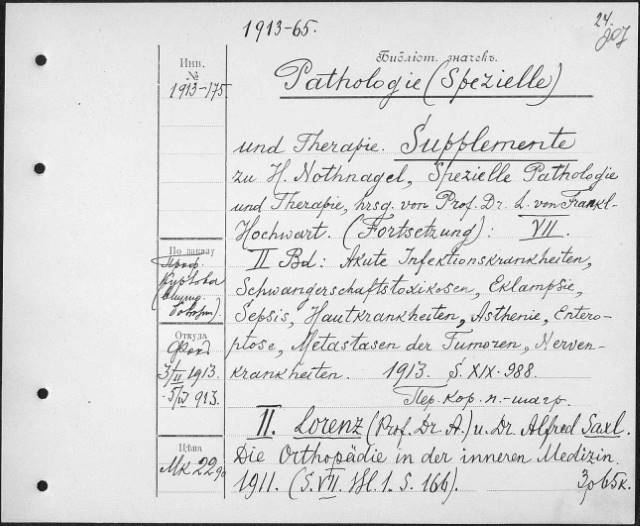 1913-65.
24.
Инв.
№
1913-175
Библіот. значекъ.
Pathologie (Spezielle)
und Therapie. Supplemente
zu H. Nothnagel, Spezielle Pathologie
und Therapie, hrsg. von Prof. Dr. L. von Frankl-
Hochwart. (Fortsetzung): VII.
II Bd: Akute Infektionskrankheiten,
Schwangerschaftstoxikosen, Eklampsie,
Sepsis, Hautkrankheiten, Asthenie, Entero-
ptose, Metastasen der Tumoren, Nerven-
krankheiten. 1913. S. XIX. 988.
Пер. кор. п.-шагр.
II. Lorenz (Prof. Dr. A.) u. Dr. Alfred Saxl.
Die Orthopädie in der inneren Medizin.
1911. (S. VII. Hl. 1. S. 166). 3р 65к.
По заказу
Проф.
Откуда
3/II 1913.
5/IV 913.
Цѣна
Mk 22 90